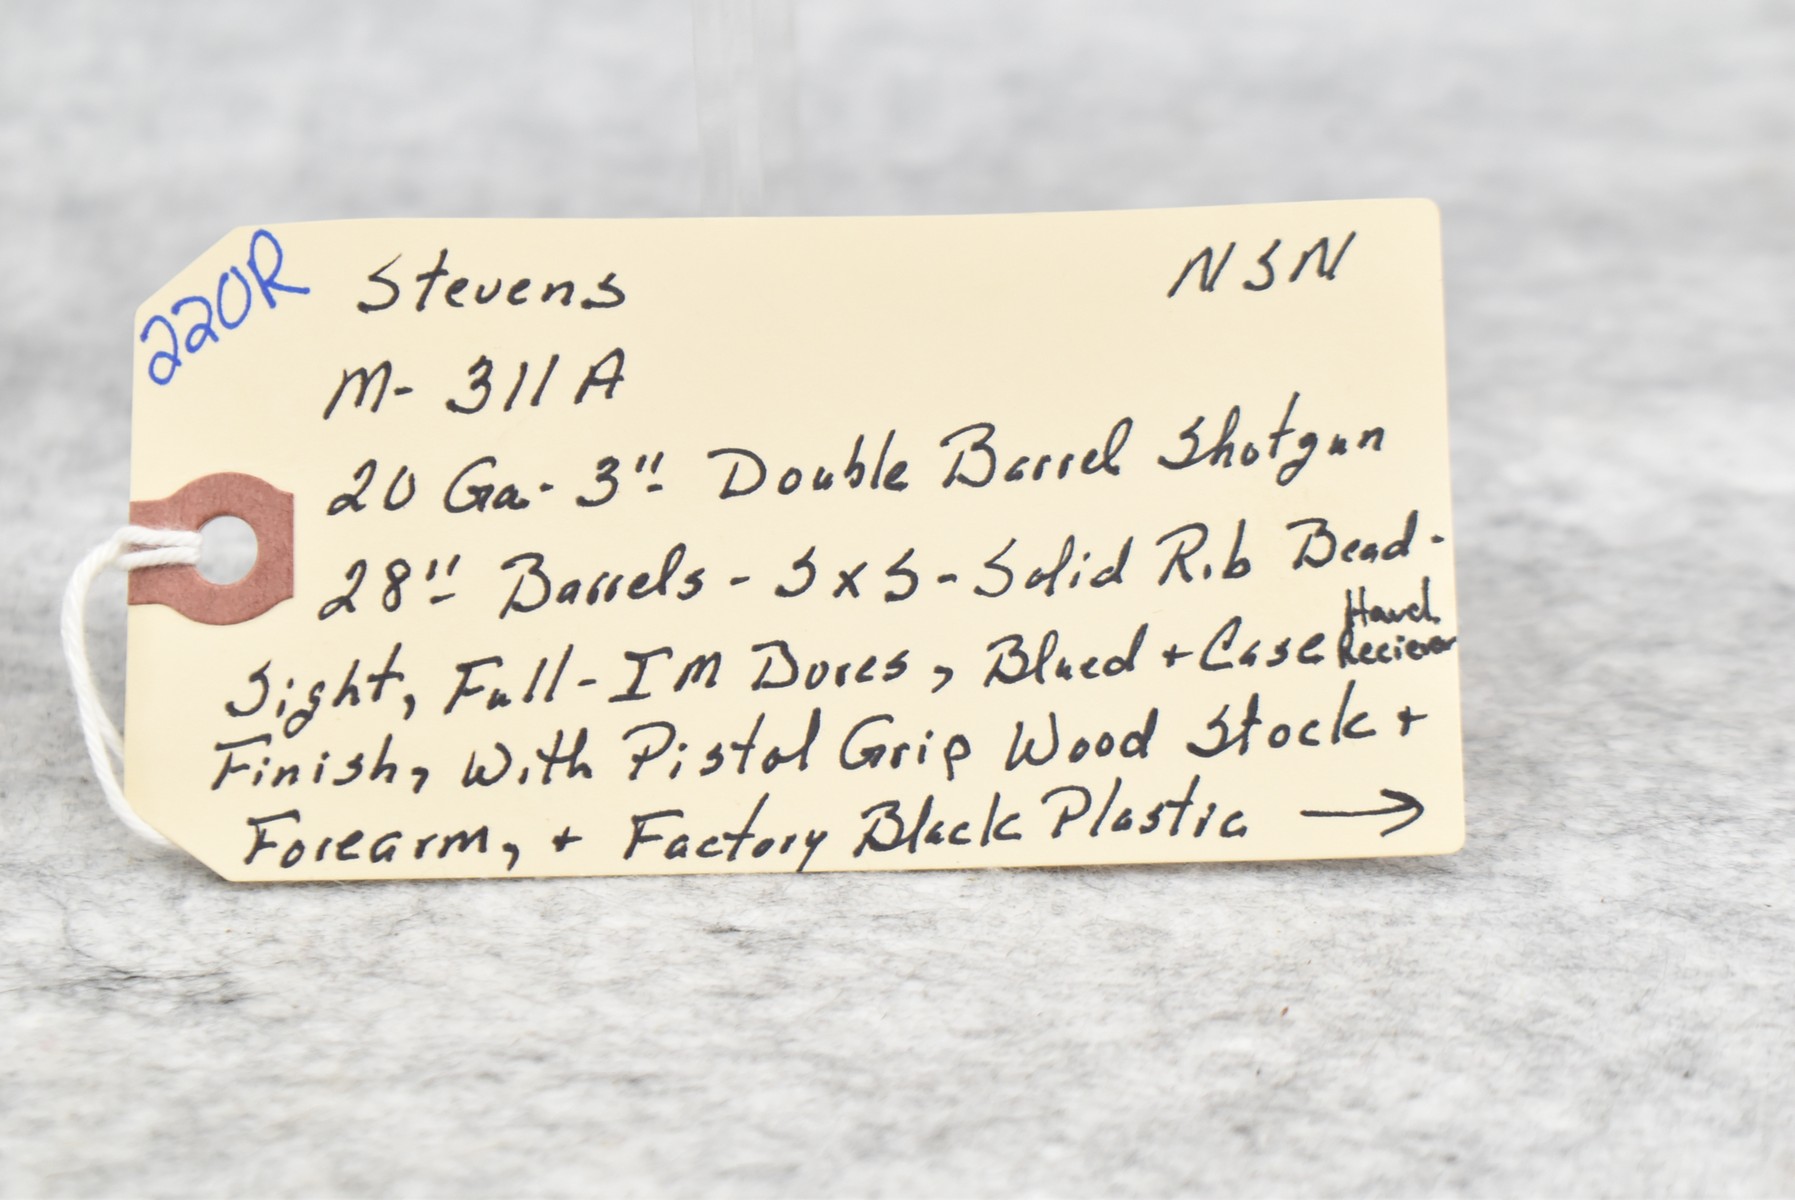 220R
Stevens NSN
M- 311A
20 Ga- 3" Double Barrel Shotgun
28" Barrels - SxS - Solid Rib Bead -
Sight, Full - IM Bores, Blued + Case Hard Reciever
Finish, With Pistol Grip Wood Stock +
Forearm, + Factory Black Plastic →